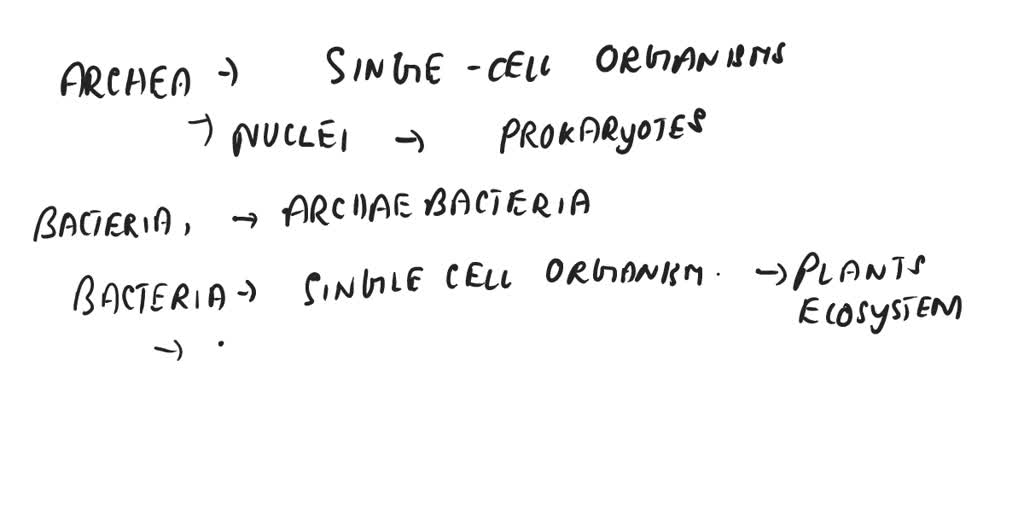 ARCHEA → SINGLE-CELL ORGANISMS
→ NUCLEI → PROKARYOTES
BACTERIA, → ARCHAEBACTERIA
BACTERIA → SINGLE CELL ORGANISM. → PLANTS
ECOSYSTEM
→ .